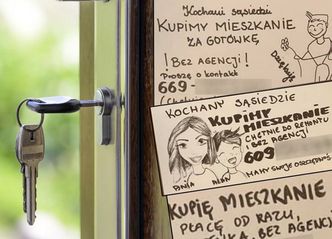 Kochani sąsiedzi
KUPIMY MIESZKANIE
ZA GOTÓWKĘ,
! BEZ AGENCJI !
Proszę o kontakt
669-
Dziękuję
KOCHANY SĄSIEDZIE
KUPIMY
MIESZKANIE
CHĘTNIE DO REMONTU
! BEZ AGENCJI !
609
MAMY SWOJE OSZCZĘDNOŚCI
ALAN
KUPIĘ MIESZKANIE
PŁACĘ OD RAZU,
BEZ AGENCJI